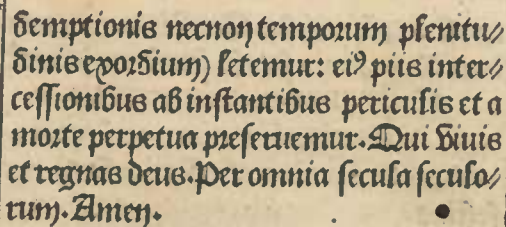 demptionis necnon temporum plenitu⸗
dinis exordium) letemur: eiꝰ piis inter⸗
cessionibus ab instantibus periculis et a
morte perpetua preseruemur. Qui viuis
et regnas deus. Per omnia secula seculo⸗
rum. Amen.